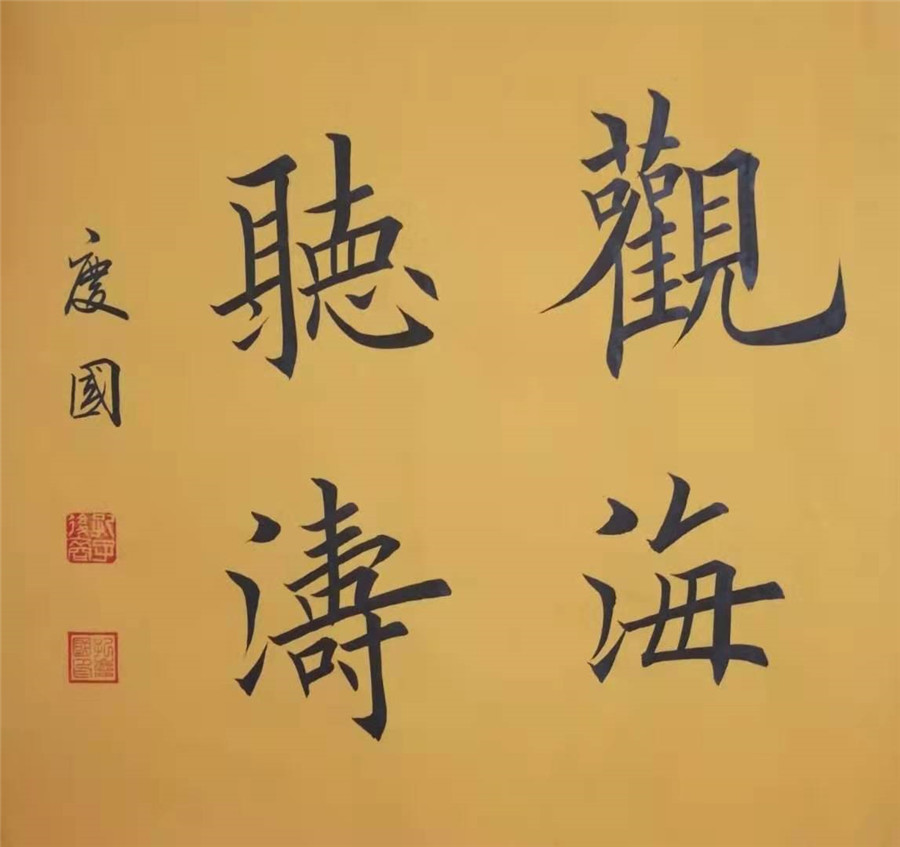 觀海
聽濤
慶國